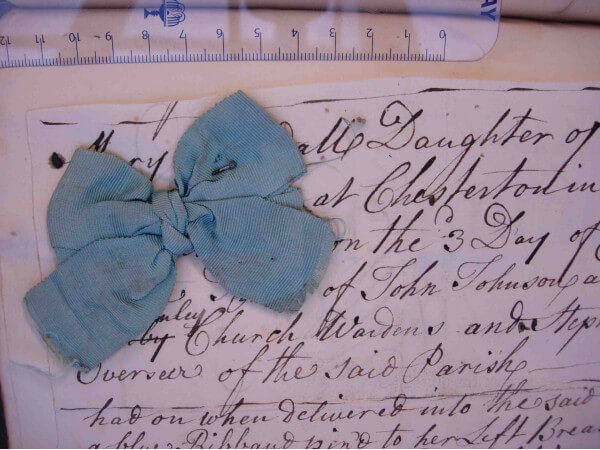 DAY
12 11 10 9 8 7 6 5 4 3 2 1 0
Mary all Daughter of
at Chesterton in
on the 3 Day of
of John Johnson a
by Church Wardens and Step
Overseer of the said Parish
had on when delivered into the said
a blue Ribband pin'd to her Left Brea